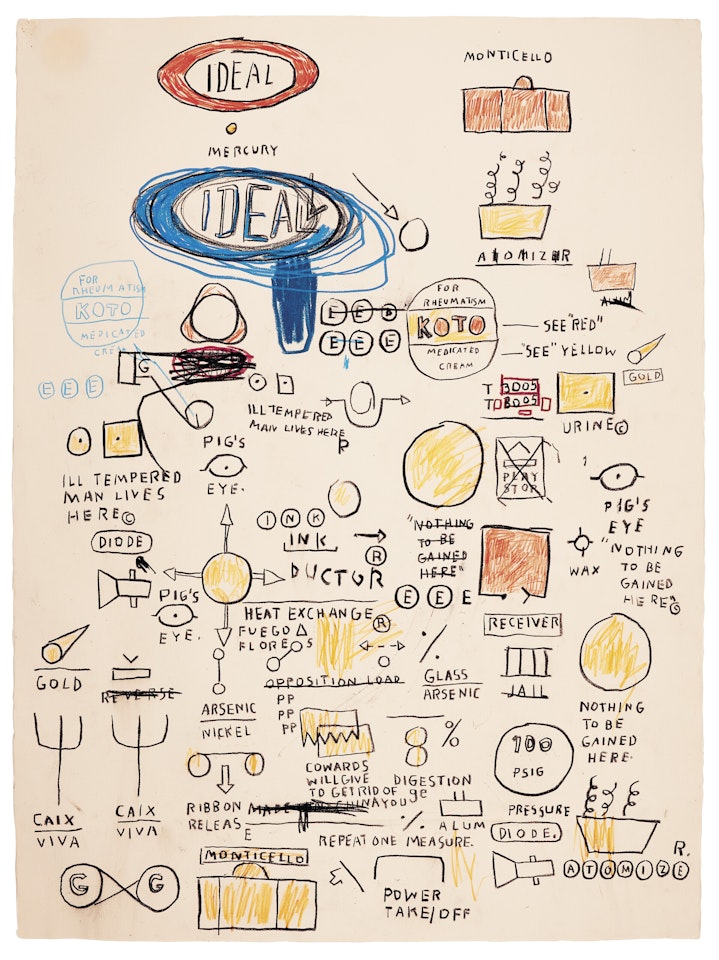 IDEAL
MONTICELLO
MERCURY
IDEAL
ATOMIZER
ALUM
FOR
RHEUMATISM
KOTO
MEDICATED
CREAM
E E E
FOR
RHEUMATISM
KOTO
MEDICATED
CREAM
SEE "RED"
"SEE" YELLOW
E E E
G
E E E
GOLD
T 3005
T 8005
URINE©
ILL TEMPERED
MAN LIVES HERE
R
PIG'S
EYE.
ILL TEMPERED
MAN LIVES
HERE©
PLAY
STOR
1
PIG'S
EYE
INK
INK
DUCTOR
®
"NOTHING
TO BE
GAINED
HERE"
WAX
"NOTHING
TO BE
GAINED
HERE"©
DIODE
PIG'S
EYE.
E E E
HEAT EXCHANGER
®
FUEGO Δ
FLORES
%
RECEIVER
GOLD
REVERSE
OPPOSITION LOAD
GLASS
ARSENIC
JAIL
NOTHING
TO BE
GAINED
HERE.
ARSENIC
NICKEL
PP
PP
PP
8
%
100
PSIG
COWARDS
WILL GIVE
TO GET RID OF
YOU
DIGESTION
ge
CAIX
VIVA
CAIX
VIVA
RIBBON
RELEASE
MADE IN CHINA
%
ALUM
PRESSURE
DIODE.
REPEAT ONE MEASURE.
R.
ATOMIZE
MONTICELLO
G G
POWER
TAKE/OFF